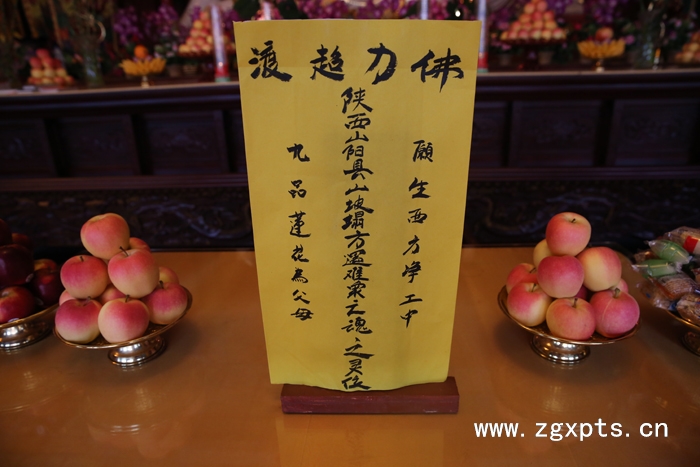 佛力超渡
愿生西方净土中
陕西山阳县山坡塌方遇难众之魂之灵位
九品莲花为父母
www.zgxpts.cn